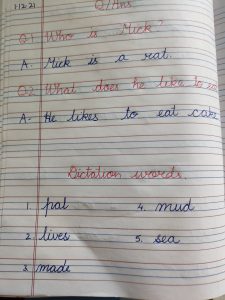 1.12.21
Q/Ans
Q1 Who is Mick?
A. Mick is a rat.
Q2 What does he like to
A- He likes to eat
Dictation words.
1. pat 4. mud
2. lives 5. sea
3. made